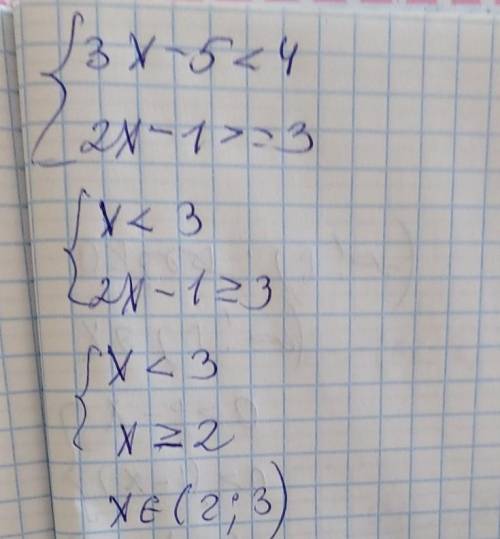 3x-5<4
2x-1>=3
x<3
2x-1≥3
x<3
x≥2
x∈(2;3)